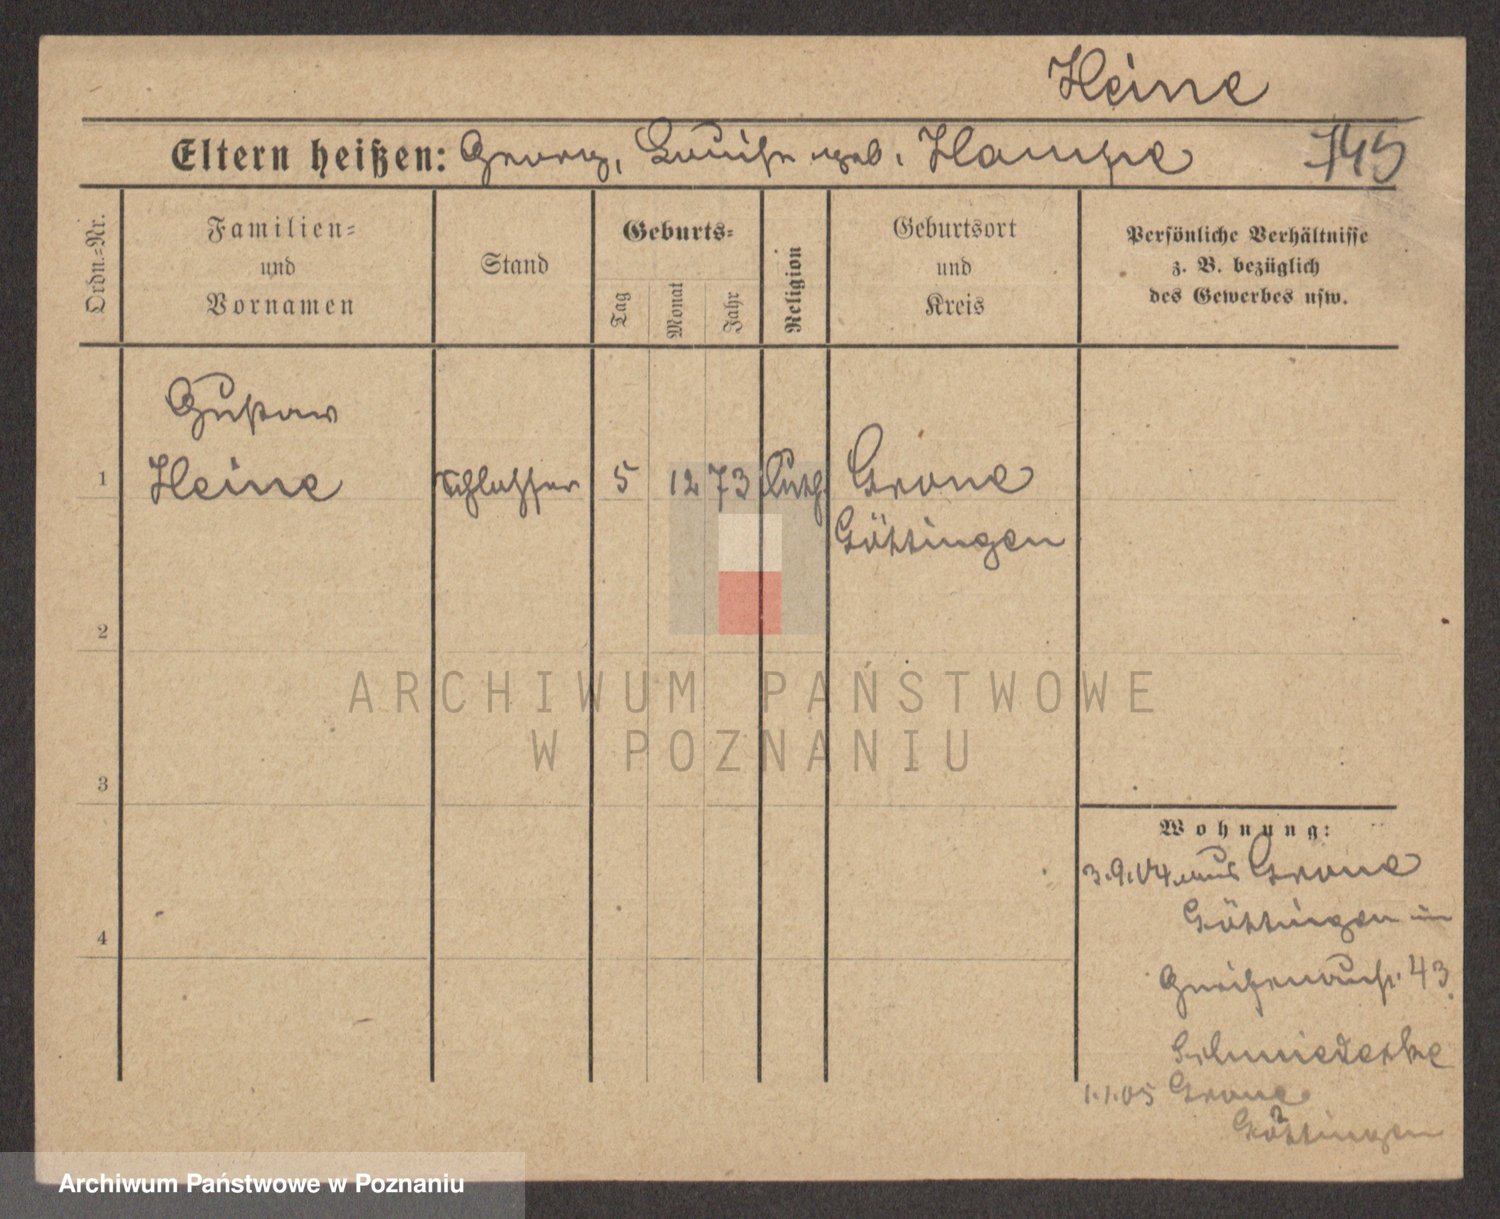 Heine
Eltern heißen: Georg, Louise geb. Hampe
745
Ordn.-Nr.
Familien-
und
Vornamen
Stand
Geburts-
Tag
Monat
Jahr
Religion
Geburtsort
und
Kreis
Persönliche Verhältnisse
z. B. bezüglich
des Gewerbes usw.
Gustav
1 Heine Schlosser 5 12 73 Luth. Grone
Göttingen
2
ARCHIWUM PAŃSTWOWE
W POZNANIU
3
Wohnung:
3.9.04 aus Grone
Göttingen in
4
43
1.1.05 Grone
Göttingen
Archiwum Państwowe w Poznaniu